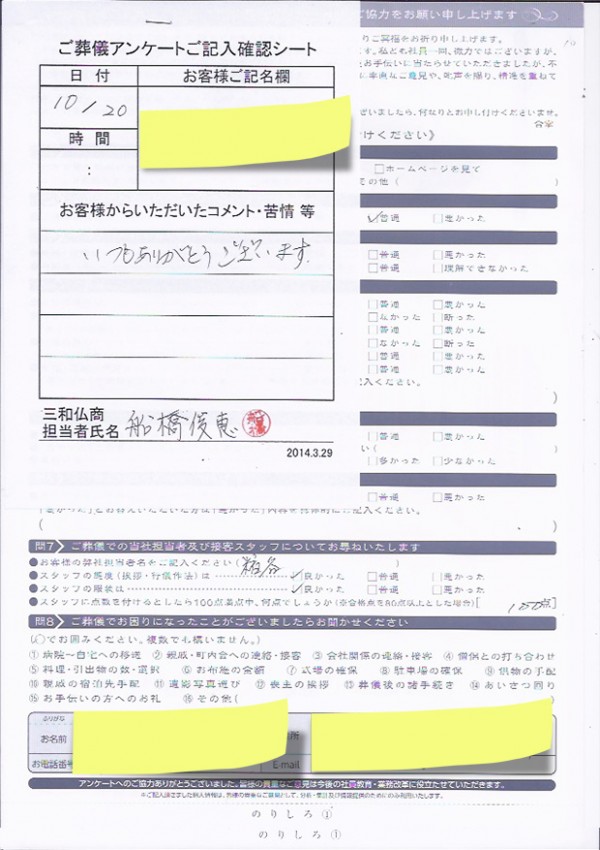 ご協力をお願い申し上げます
ご葬儀アンケートご記入確認シート
日付
お客様ご記名欄
10/20
時間
:
お客様からいただいたコメント・苦情 等
いつもありがとうございます。
三和仏商
担当者氏名 船橋俊恵
2014.3.29
りご冥福をお祈り申し上げます。
す。私ども社員一同、微力ではございますが、
お手伝いに当たらせていただきましたが、不
ございましたら、何なりとお申し付けくださいませ。
合掌
けください》
□ホームページを見て
その他 (
✓普通 □悪かった
□普通 □悪かった
□普通 □理解できなかった
□普通 □悪かった
□なかった □断った
□普通 □悪かった
□なかった □断った
□普通 □悪かった
□普通 □悪かった
記入ください。
)
□普通 □悪かった
い (
□多かった □少なかった
□普通 □悪かった
( )
問7 ご葬儀での当社担当者及び接客スタッフについてお尋ねいたします
●お客様の弊社担当者名をご記入ください ( 粕谷 )
●スタッフの態度 (挨拶・行儀作法) は ✓良かった □普通 □悪かった
●スタッフの服装は ✓良かった □普通 □悪かった
●スタッフに点数を付けるとしたら100点満点中、何点でしょうか (※合格点を80点以上とした場合) [ 100点 ]
問8 ご葬儀でお困りになったことがございましたらお聞かせください
(○でお囲みください。複数でも構いません。)
①病院〜自宅への移送 ②親戚・町内会への連絡・接客 ③会社関係の連絡・接客 ④僧侶との打ち合わせ
⑤料理・引出物の数・選択 ⑥お布施の金額 ⑦式場の確保 ⑧駐車場の確保 ⑨供物の手配
⑩親戚の宿泊先手配 ⑪遺影写真選び ⑫喪主の挨拶 ⑬葬儀後の諸手続き ⑭あいさつ回り
⑮お手伝いの方へのお礼 ⑯その他 ( )
ふりがな
お名前
所
お電話番号
E-mail
アンケートへのご協力ありがとうございました。皆様の貴重なご意見は今後の社員教育・業務改革に役立たせていただきます。
のりしろ①
のりしろ①